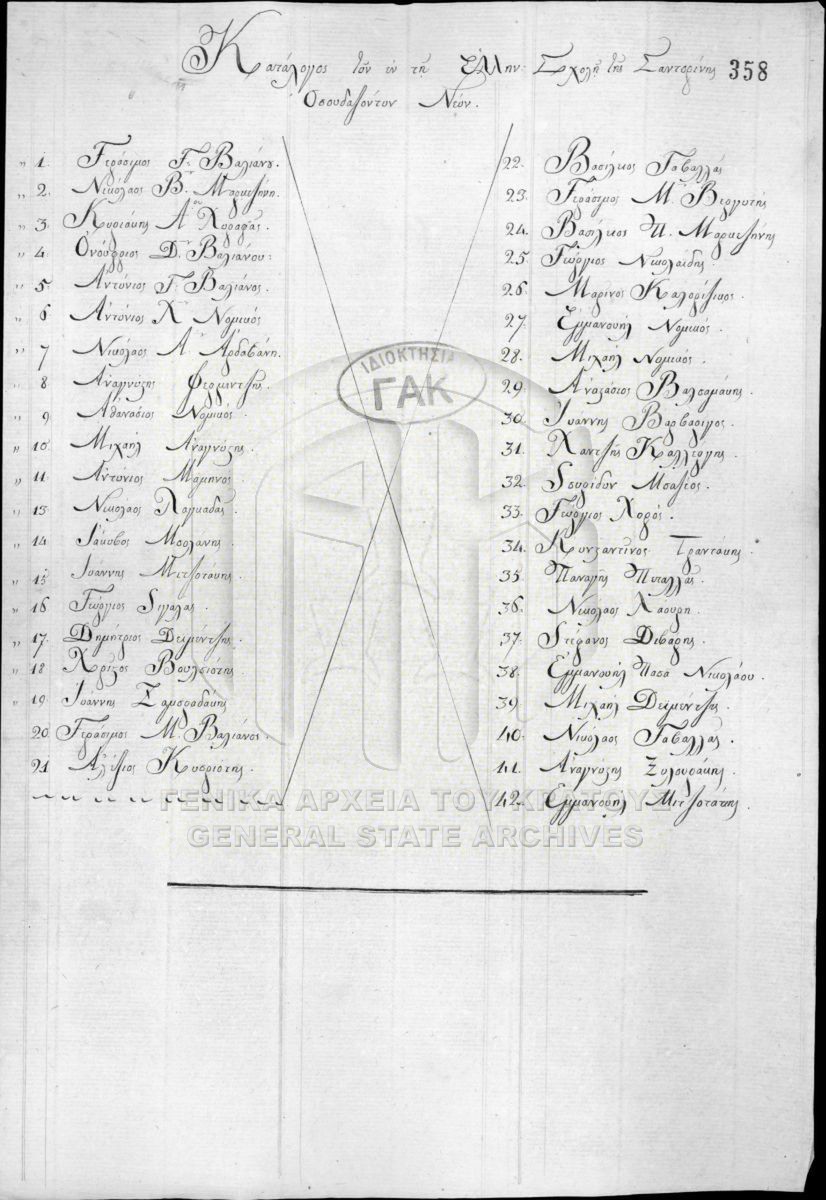 Κατάλογος τῶν ἐν τῇ Ἑλλην: Σχολῇ τῆς Σαντορίνης 358
Σπουδαζόντων Νέων.
„ 1. Γεράσιμος Γ. Βαλιάνου.
„ 2. Νικόλαος Β. Μαρκεζίνη.
„ 3. Κυριάκης Α
„ 4. Ὀνούφριος Δ. Βαλιάνου:
„ 5. Ἀντώνιος Γ. Βαλιάνος.
„ 6 Ἀντώνιος Χ Νομικός
„ 7 Νικόλαος Α Ἀρδαβάνη.
„ 8 Ἀναγνώςης Δερμιντζῆς.
„ 9 Ἀθανάσιος Νομικός.
„ 10. Μιχαὴλ Ἀναγνώςης.
„ 11. Ἀντώνιος Μαμηνος.
„ 13. Νικόλαος Λαγκαδᾶς.
„ 14. Ἰάκωβος
„ 15 Ἰωάννης Μιτζοτάκης.
„ 16 Γεώργιος Σιγαλας.
„ 17. Δημήτριος Δεϊμέντζης.
„ 18 Χρίςος
„ 19. Ἰωάννης
20 Γεράσιμος Μ. Βαλιάνος.
21 Ἀλέξιος Κυπριότης.
22. Βασίλειος Γαβαλλᾶς
23. Γεράσιμος Μ. Βεργωτής
24. Βασίλειος Π. Μαρκεζίνης
25. Γεώργιος Νικολαΐδης.
26. Μαρίνος Καλορίζικος.
27. Ἐμμανουὴλ Νομικός.
28. Μιχαὴλ Νομικός.
29. Ἀναςάσιος Βαλσαμάκης.
30. Ἰωάννης Βαρβαρῖγος.
31. Χαντζῆς Καλλέργης.
32. Σπυρίδων
33. Γεώργιος Χορός.
34. Κωνςαντῖνος Τραντάκης.
35. Παναγῆς Πιταλλᾶς.
36. Νικόλαος Λάουρη.
37. Στέφανος Δεβάρης.
38. Ἐμμανουὴλ Παπᾶ Νικολάου.
39. Μιχαὴλ Δεϊμέντζης.
40. Νικόλαος Γαβαλλᾶς.
41. Ἀναγνώςης
42. Ἐμμανουὴλ Μιτζοτάκης.
ΙΔΙΟΚΤΗΣΙΑ
ΓΑΚ
ΓΕΝΙΚΑ ΑΡΧΕΙΑ ΤΟΥ ΚΡΑΤΟΥΣ
GENERAL STATE ARCHIVES